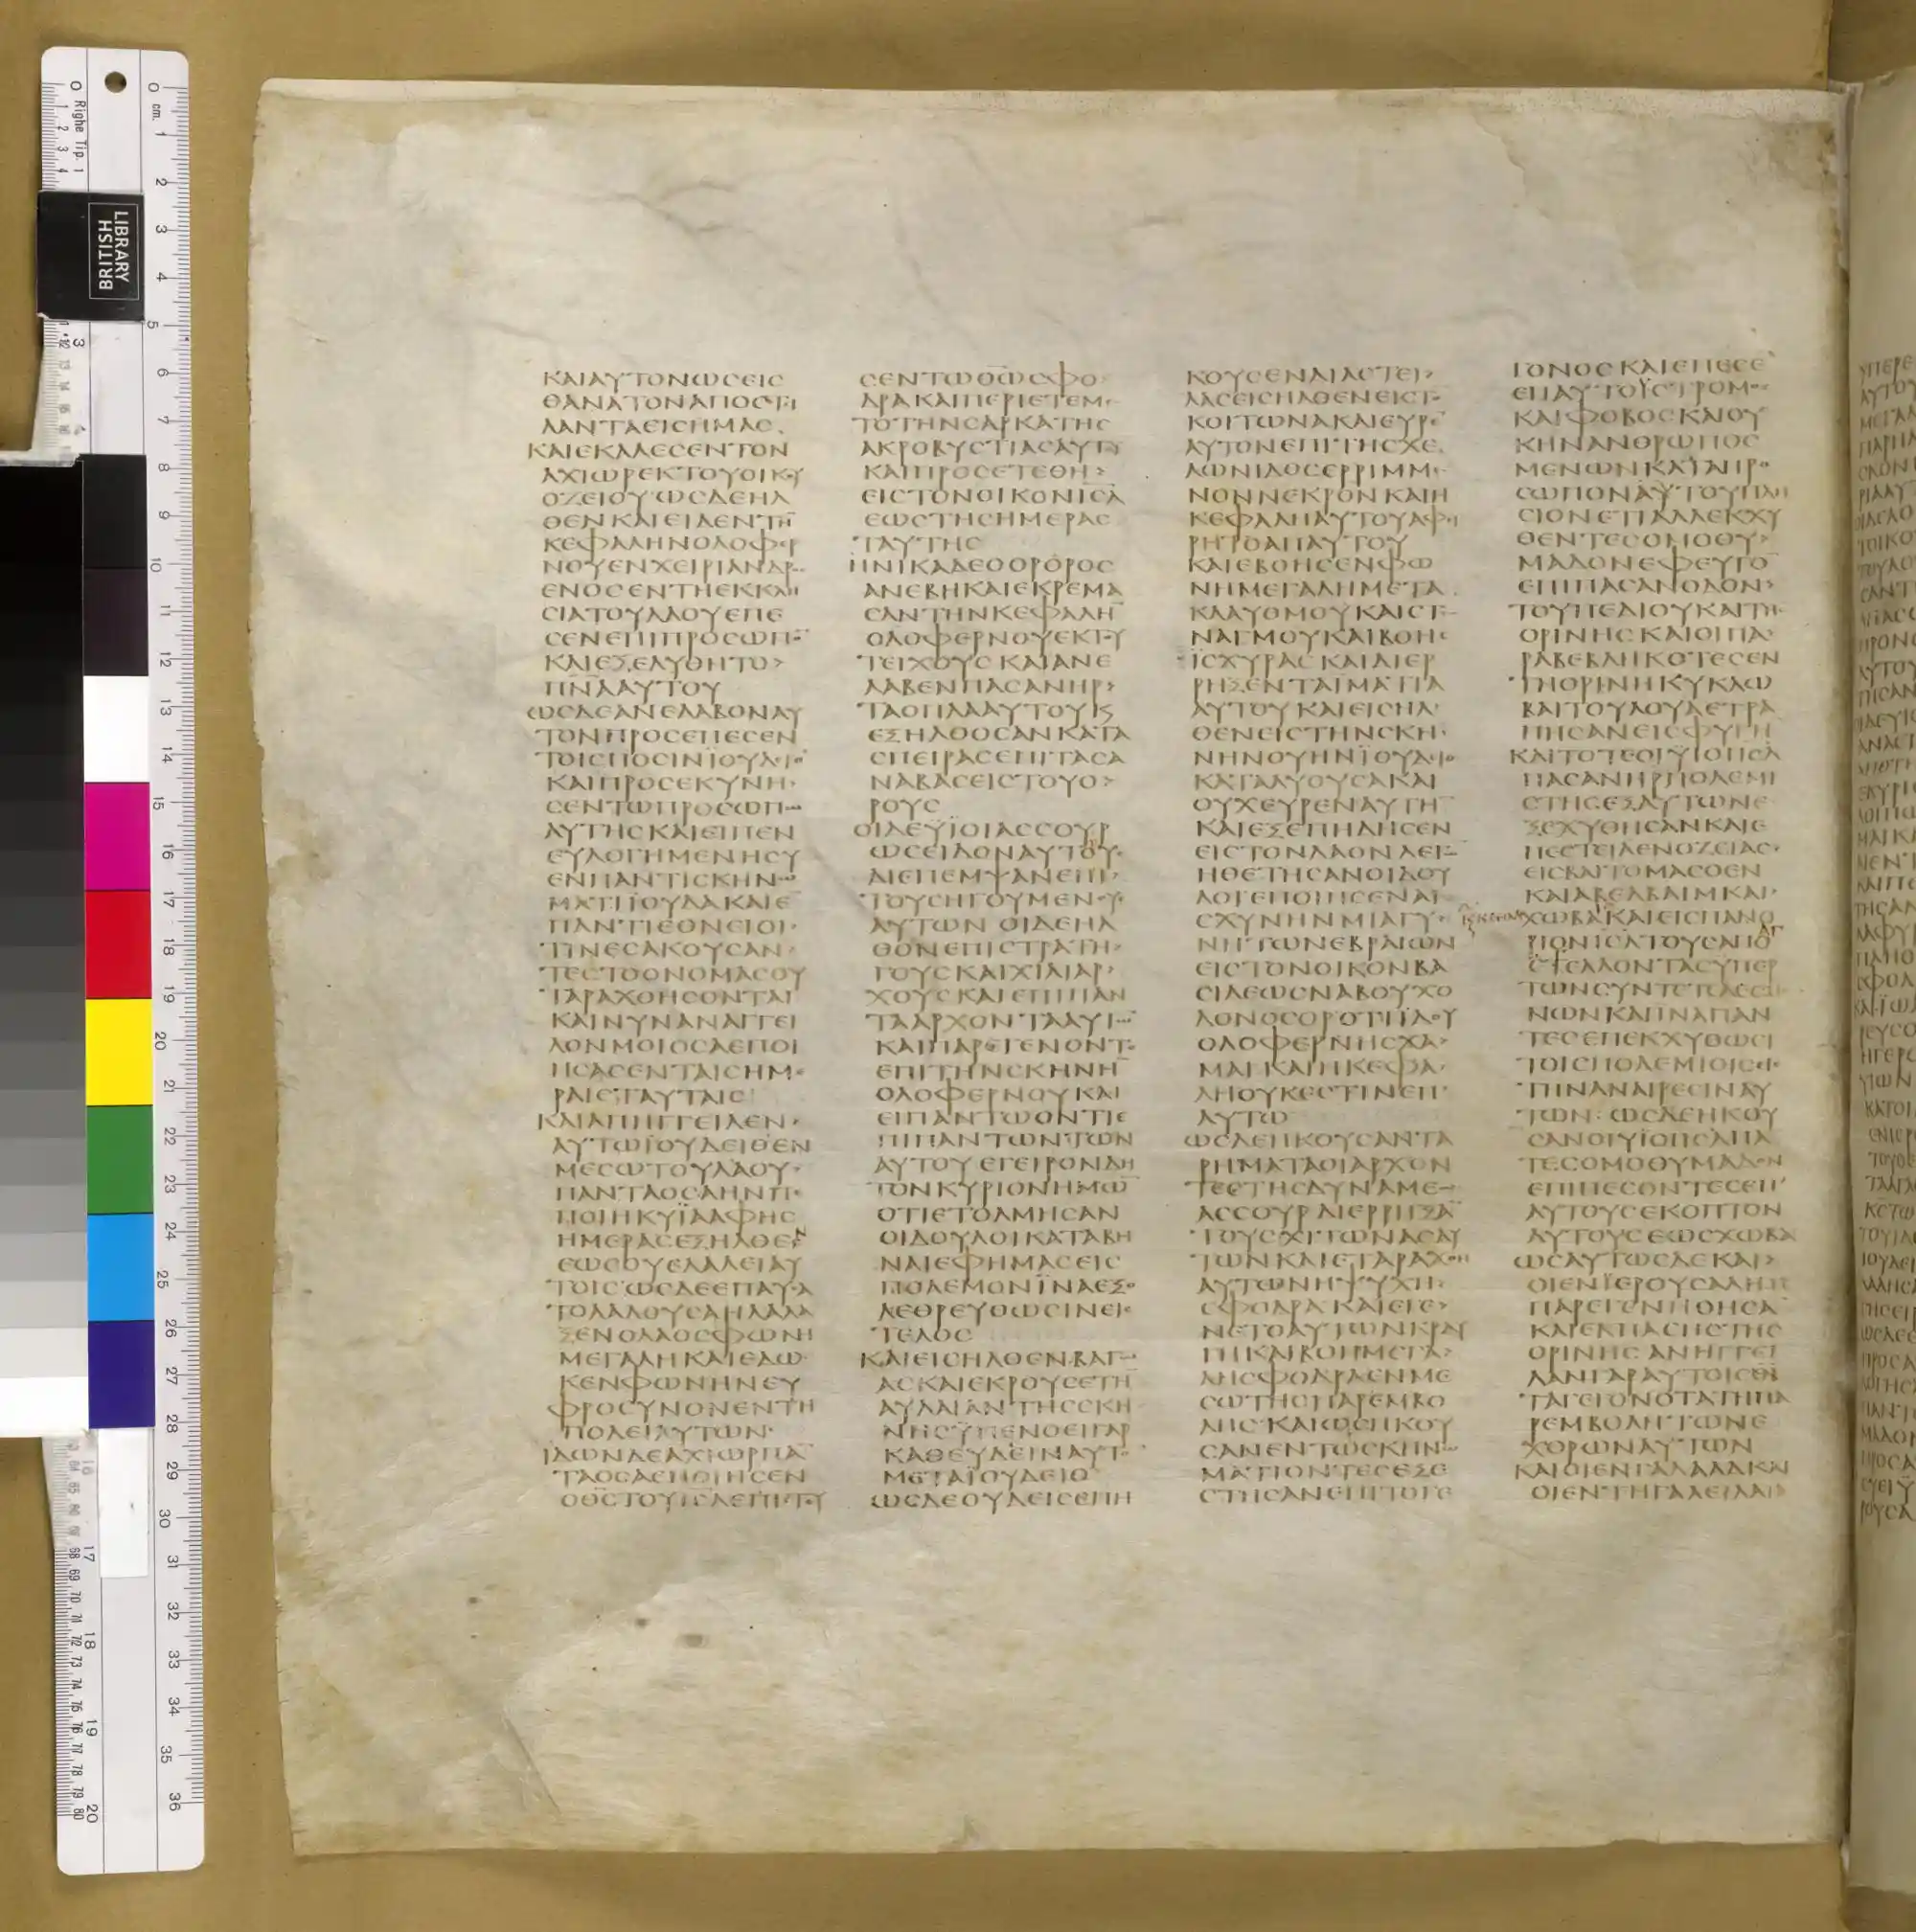 ΚΑΙΑΥΤΟΝΩϹΕΙϹ
ΘΑΝΑΤΟΝΑΠΟϹΤΙ
ΛΑΝΤΑΕΙϹΗΜΑϹ
ΚΑΙΕΚΑΛΕϹΕΝΤΟΝ
ΑΧΙΩΡΕΚΤΟΥΟΙΚΟΥ
ΟΖΕΙΟΥΩϹΔΕΗΛ
ΘΕΝΚΑΙΕΙΔΕΝΤΗ̅
ΚΕΦΑΛΗΝΟΛΟΦΕΡ
ΝΟΥΕΝΧΕΙΡΙΑΝΔΡ
ΕΝΟϹΕΝΤΗΕΚΚΛΗ
ϹΙΑΤΟΥΛΑΟΥΕΠΕ
ϹΕΝΕΠΙΠΡΟϹΩΠΟ̅
ΚΑΙΕΞΕΛΥΘΗΤΟ>
Π̅Ν̅Α̅ΑΥΤΟΥ
ΩϹΔΕΑΝΕΛΑΒΟΝΑΥ
ΤΟΝΠΡΟϹΕΠΕϹΕΝ
ΤΟΙϹΠΟϹΙΝΪΟΥΔΙΘ
ΚΑΙΠΡΟϹΕΚΥΝΗ
ϹΕΝΤΩΠΡΟϹΩΠΩ
ΑΥΤΗϹΚΑΙΕΙΠΕΝ
ΕΥΛΟΓΗΜΕΝΗϹΥ
ΕΝΠΑΝΤΙϹΚΗΝΩ
ΜΑΤΙΪΟΥΔΑΚΑΙΕ
ΠΑΝΤΙΕΘΝΕΙΟΙ
ΤΙΝΕϹΑΚΟΥϹΑΝ
ΤΕϹΤΟΟΝΟΜΑϹΟΥ
ΤΑΡΑΧΘΗϹΟΝΤΑΙ
ΚΑΙΝΥΝΑΝΑΓΓΕΙ
ΛΟΝΜΟΙΟϹΑΕΠΟΙ
ΗϹΑϹΕΝΤΑΙϹΗΜΕ
ΡΑΙϹΤΑΥΤΑΙϹ
ΚΑΙΑΠΗΓΓΕΙΛΕΝ
ΑΥΤΩΪΟΥΔΕΙΘΕΝ
ΜΕϹΩΤΟΥΛΑΟΥ
ΠΑΝΤΑΟϹΑΗΝΠΕ
ΠΟΙΗΚΥΪΑΑΦΗϹ
ΗΜΕΡΑϹΕΞΗΛΘΕΝ
ΕΩϹΟΥΕΛΑΛΕΙΑΥ
ΤΟΙϹΩϹΔΕΕΠΑΥϹΑ
ΤΟΛΑΛΟΥϹΑΗΛΑΛΑ
ΞΕΝΟΛΑΟϹΦΩΝΗ
ΜΕΓΑΛΗΚΑΙΕΔΩ
ΚΕΝΦΩΝΗΝΕΥ
ΦΡΟϹΥΝΟΝΕΝΤΗ
ΠΟΛΕΙΑΥΤΩΝ
ΪΔΩΝΔΕΑΧΙΩΡΠΑ̅
ΤΑΟϹΑΕΠΟΙΗϹΕΝ
ΟΘ̅Ϲ̅ΤΟΥΙ̅Ϲ̅Λ̅ΕΠΙϹΤΕΥ
ϹΕΝΤΩΘ̅Ω̅ϹΦΟ
ΔΡΑΚΑΙΠΕΡΙΕΤΕΜΕ
ΤΟΤΗΝϹΑΡΚΑΤΗϹ
ΑΚΡΟΒΥϹΤΙΑϹΑΥΤΟΥ
ΚΑΙΠΡΟϹΕΤΕΘΗ>
ΕΙϹΤΟΝΟΙΚΟΝΙ̅Ϲ̅Λ̅
ΕΩϹΤΗϹΗΜΕΡΑϹ
ΤΑΥΤΗϹ
ΗΝΙΚΑΔΕΟΟΡΘΡΟϹ
ΑΝΕΒΗΚΑΙΕΚΡΕΜΑ
ϹΑΝΤΗΝΚΕΦΑΛΗ̅
ΟΛΟΦΕΡΝΟΥΕΚΤΟΥ
ΤΕΙΧΟΥϹΚΑΙΑΝΕ
ΛΑΒΕΝΠΑϹΑΝΗΡ>
ΤΑΟΠΛΑΑΥΤΟΥϏ
ΕΞΗΛΘΟϹΑΝΚΑΤΑ
ϹΠΕΙΡΑϹΕΠΙΤΑϹΑ
ΝΑΒΑϹΕΙϹΤΟΥΟ>
ΡΟΥϹ
ΟΙΔΕΥΪΟΙΑϹϹΟΥΡ
ΩϹΕΙΔΟΝΑΥΤΟΥ
ΔΙΕΠΕΜΨΑΝΕΠΙ
ΤΟΥϹΗΓΟΥΜΕΝΟΥ
ΑΥΤΩΝΟΙΔΕΗΛ
ΘΟΝΕΠΙϹΤΡΑΤΗ
ΓΟΥϹΚΑΙΧΙΛΙΑΡ
ΧΟΥϹΚΑΙΕΠΙΠΑΝ
ΤΑΑΡΧΟΝΤΑΑΥΤΩ̅
ΚΑΙΠΑΡΕΓΕΝΟΝΤΟ
ΕΠΙΤΗΝϹΚΗΝΗ̅
ΟΛΟΦΕΡΝΟΥΚΑΙ
ΕΙΠΑΝΤΩΟΝΤΙΕ
ΠΙΠΑΝΤΩΝΤΩΝ
ΑΥΤΟΥΕΓΕΙΡΟΝΔΗ
ΤΟΝΚΥΡΙΟΝΗΜΩ̅
ΟΤΙΕΤΟΛΜΗϹΑΝ
ΟΙΔΟΥΛΟΙΚΑΤΑΒΗ
ΝΑΙΕΦΗΜΑϹΕΙϹ
ΠΟΛΕΜΟΝΪΝΑΕΞΟ
ΛΕΘΡΕΥΘΩϹΙΝΕΙϹ
ΤΕΛΟϹ
ΚΑΙΕΙϹΗΛΘΕΝΒΑΓΩ
ΑϹΚΑΙΕΚΡΟΥϹΕΤΗ̅
ΑΥΛΑΙΑΝΤΗϹϹΚΗ
ΝΗϹΫΠΕΝΟΕΙΓΑΡ
ΚΑΘΕΥΔΕΙΝΑΥΤΟ̅
ΜΕΤΑΪΟΥΔΕΙΘ
ΩϹΔΕΟΥΔΕΙϹΕΠΗ
ΚΟΥϹΕΝΔΙΑϹΤΕΙ>
ΛΑϹΕΙϹΗΛΘΕΝΕΙϹΤΟ̅
ΚΟΙΤΩΝΑΚΑΙΕΥΡΕ̅
ΑΥΤΟΝΕΠΙΤΗϹΧΕ
ΛΩΝΙΔΟϹΕΡΡΙΜΜΕ
ΝΟΝΝΕΚΡΟΝΚΑΙΗ
ΚΕΦΑΛΗΑΥΤΟΥΑΦΗ
ΡΗΤΟΑΠΑΥΤΟΥ
ΚΑΙΕΒΟΗϹΕΝΦΩ
ΝΗΜΕΓΑΛΗΜΕΤΑ
ΚΛΑΥΘΜΟΥΚΑΙϹΤΕ
ΝΑΓΜΟΥΚΑΙΒΟΗϹ
ΪϹΧΥΡΑϹΚΑΙΔΙΕΡ
ΡΗΞΕΝΤΑΪΜΑΤΙΑ
ΑΥΤΟΥΚΑΙΕΙϹΗΛ
ΘΕΝΕΙϹΤΗΝϹΚΗ
ΝΗΝΟΥΗΝΪΟΥΔΙΘ
ΚΑΤΑΛΥΟΥϹΑΚΑΙ
ΟΥΧΕΥΡΕΝΑΥΤΗ̅
ΚΑΙΕΞΕΠΗΔΗϹΕΝ
ΕΙϹΤΟΝΛΑΟΝΛΕΓΩ̅
ΗΘΕΤΗϹΑΝΟΙΔΟΥ
ΛΟΙΕΠΟΙΗϹΕΝΑΙ
ϹΧΥΝΗΝΜΙΑΓΥ
ΝΗΤΩΝΕΒΡΑΙΩΝ
ΕΙϹΤΟΝΟΙΚΟΝΒΑ
ϹΙΛΕΩϹΝΑΒΟΥΧΟ
ΔΟΝΟϹΟΡΟΤΙΪΔΟΥ
ΟΛΟΦΕΡΝΗϹΧΑ
ΜΑΙΚΑΙΗΚΕΦΑ
ΛΗΟΥΚΕϹΤΙΝΕΠ
ΑΥΤΩ
ΩϹΔΕΗΚΟΥϹΑΝΤΑ
ΡΗΜΑΤΑΟΙΑΡΧΟΝ
ΤΕϹΤΗϹΔΥΝΑΜΕΩϹ
ΑϹϹΟΥΡΔΙΕΡΡΗΞΑ̅
ΤΟΥϹΧΙΤΩΝΑϹΑΥ
ΤΩΝΚΑΙΕΤΑΡΑΧΘΗ
ΑΥΤΩΝΗΨΥΧΗ
ϹΦΟΔΡΑΚΑΙΕΓΕ>
ΝΕΤΟΑΥΤΩΝΚΡΑΥ
ΓΗΚΑΙΒΟΗΜΕΓΑ>
ΛΗϹΦΟΔΡΑΕΝΜΕ
ϹΩΤΗϹΠΑΡΕΜΒΟ
ΛΗϹΚΑΙΩϹΗΚΟΥ
ϹΑΝΕΝΤΩϹΚΗΝΩ
ΜΑΤΙΟΝΤΕϹΕΞΕ
ϹΤΗϹΑΝΕΠΙΤΟΓΕ
ΓΟΝΟϹΚΑΙΕΠΕϹΕ̅
ΕΠΑΥΤΟΥϹΤΡΟΜΟϹ
ΚΑΙΦΟΒΟϹΚΑΙΟΥ
ΚΗΝΑΝΘΡΩΠΟϹ
ΜΕΝΩΝΚΑΤΑΠΡΟ
ϹΩΠΟΝΑΥΤΟΥΠΛΗ
ϹΙΟΝΕΤΙΑΛΛΕΚΧΥ
ΘΕΝΤΕϹΟΜΟΘΥ>
ΜΑΔΟΝΕΦΕΥΓΟ̅
ΕΠΙΠΑϹΑΝΟΔΟΝ>
ΤΟΥΠΕΔΙΟΥΚΑΙΤΗϹ
ΟΡΙΝΗϹΚΑΙΟΙΠΑ
ΡΑΒΕΒΛΗΚΟΤΕϹΕΝ
ΤΗΟΡΙΝΗΚΥΚΛΩ
ΒΑΙΤΟΥΛΟΥΑΕΤΡΑ
ΠΗϹΑΝΕΙϹΦΥΓΗ̅
ΚΑΙΤΟΤΕΟΙΥΪΟΙΙ̅Ϲ̅Λ̅
ΠΑϹΑΝΗΡΠΟΛΕΜΙ
ϹΤΗϹΕΞΑΥΤΩΝΕ
ΞΕΧΥΘΗϹΑΝΚΑΙΕ
ΠΕϹΤΕΙΛΕΝΟΖΕΙΑϹ
ΕΙϹΒΑΙΤΟΜΑϹΘΕΝ
ΚΑΙΑΒΕΛΒΑΙΜΚΑΙ
ΧΩΒΑΚΑΙΕΙϹΠΑΝΟ
ΡΙΟΝΙ̅Ϲ̅Λ̅ΤΟΥϹΑΠΟ
ϹΤΕΛΛΟΝΤΑϹΫΠΕΡ
ΤΩΝϹΥΝΤΕΤΕΛΕϹΜΕ
ΝΩΝΚΑΙΙΝΑΠΑΝ
ΤΕϹΕΠΕΚΧΥΘΩϹΙ
ΤΟΙϹΠΟΛΕΜΙΟΙϹΕΙϹ
ΤΗΝΑΝΑΙΡΕϹΙΝΑΥ
ΤΩΝΩϹΔΕΗΚΟΥ
ϹΑΝΟΙΥΪΟΙΙ̅Ϲ̅Λ̅ΠΑ̅
ΤΕϹΟΜΟΘΥΜΑΔΟΝ
ΕΠΙΠΕϹΟΝΤΕϹΕΠ
ΑΥΤΟΥϹΕΚΟΠΤΟΝ
ΑΥΤΟΥϹΕΩϹΧΩΒΑ
ΩϹΑΥΤΩϹΔΕΚΑΙ>
ΟΙΕΝΪΕΡΟΥϹΑΛΗΜ
ΠΑΡΕΓΕΝΗΘΗϹΑ̅
ΚΑΙΕΚΠΑϹΗϹΤΗϹ
ΟΡΙΝΗϹΑΝΗΓΓΕΙ
ΛΑΝΓΑΡΑΥΤΟΙϹ
ΤΑΓΕΓΟΝΟΤΑΤΗΠΑ
ΡΕΜΒΟΛΗΤΩΝΕ
ΧΘΡΩΝΑΥΤΩΝ
ΚΑΙΟΙΕΝΓΑΛΑΑΔΚΑΙ
ΟΙΕΝΤΗΓΑΛΕΙΛΑΙΑ
BRITISH
LIBRARY